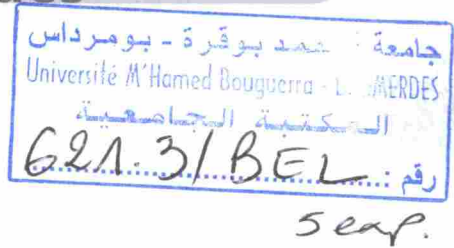 جامعة محمد بوقرة - بومرداس
Université M'Hamed Bouguerra - MERDES
المكتبة الجامعية
رقم : 621.3/BEL
5 eap.